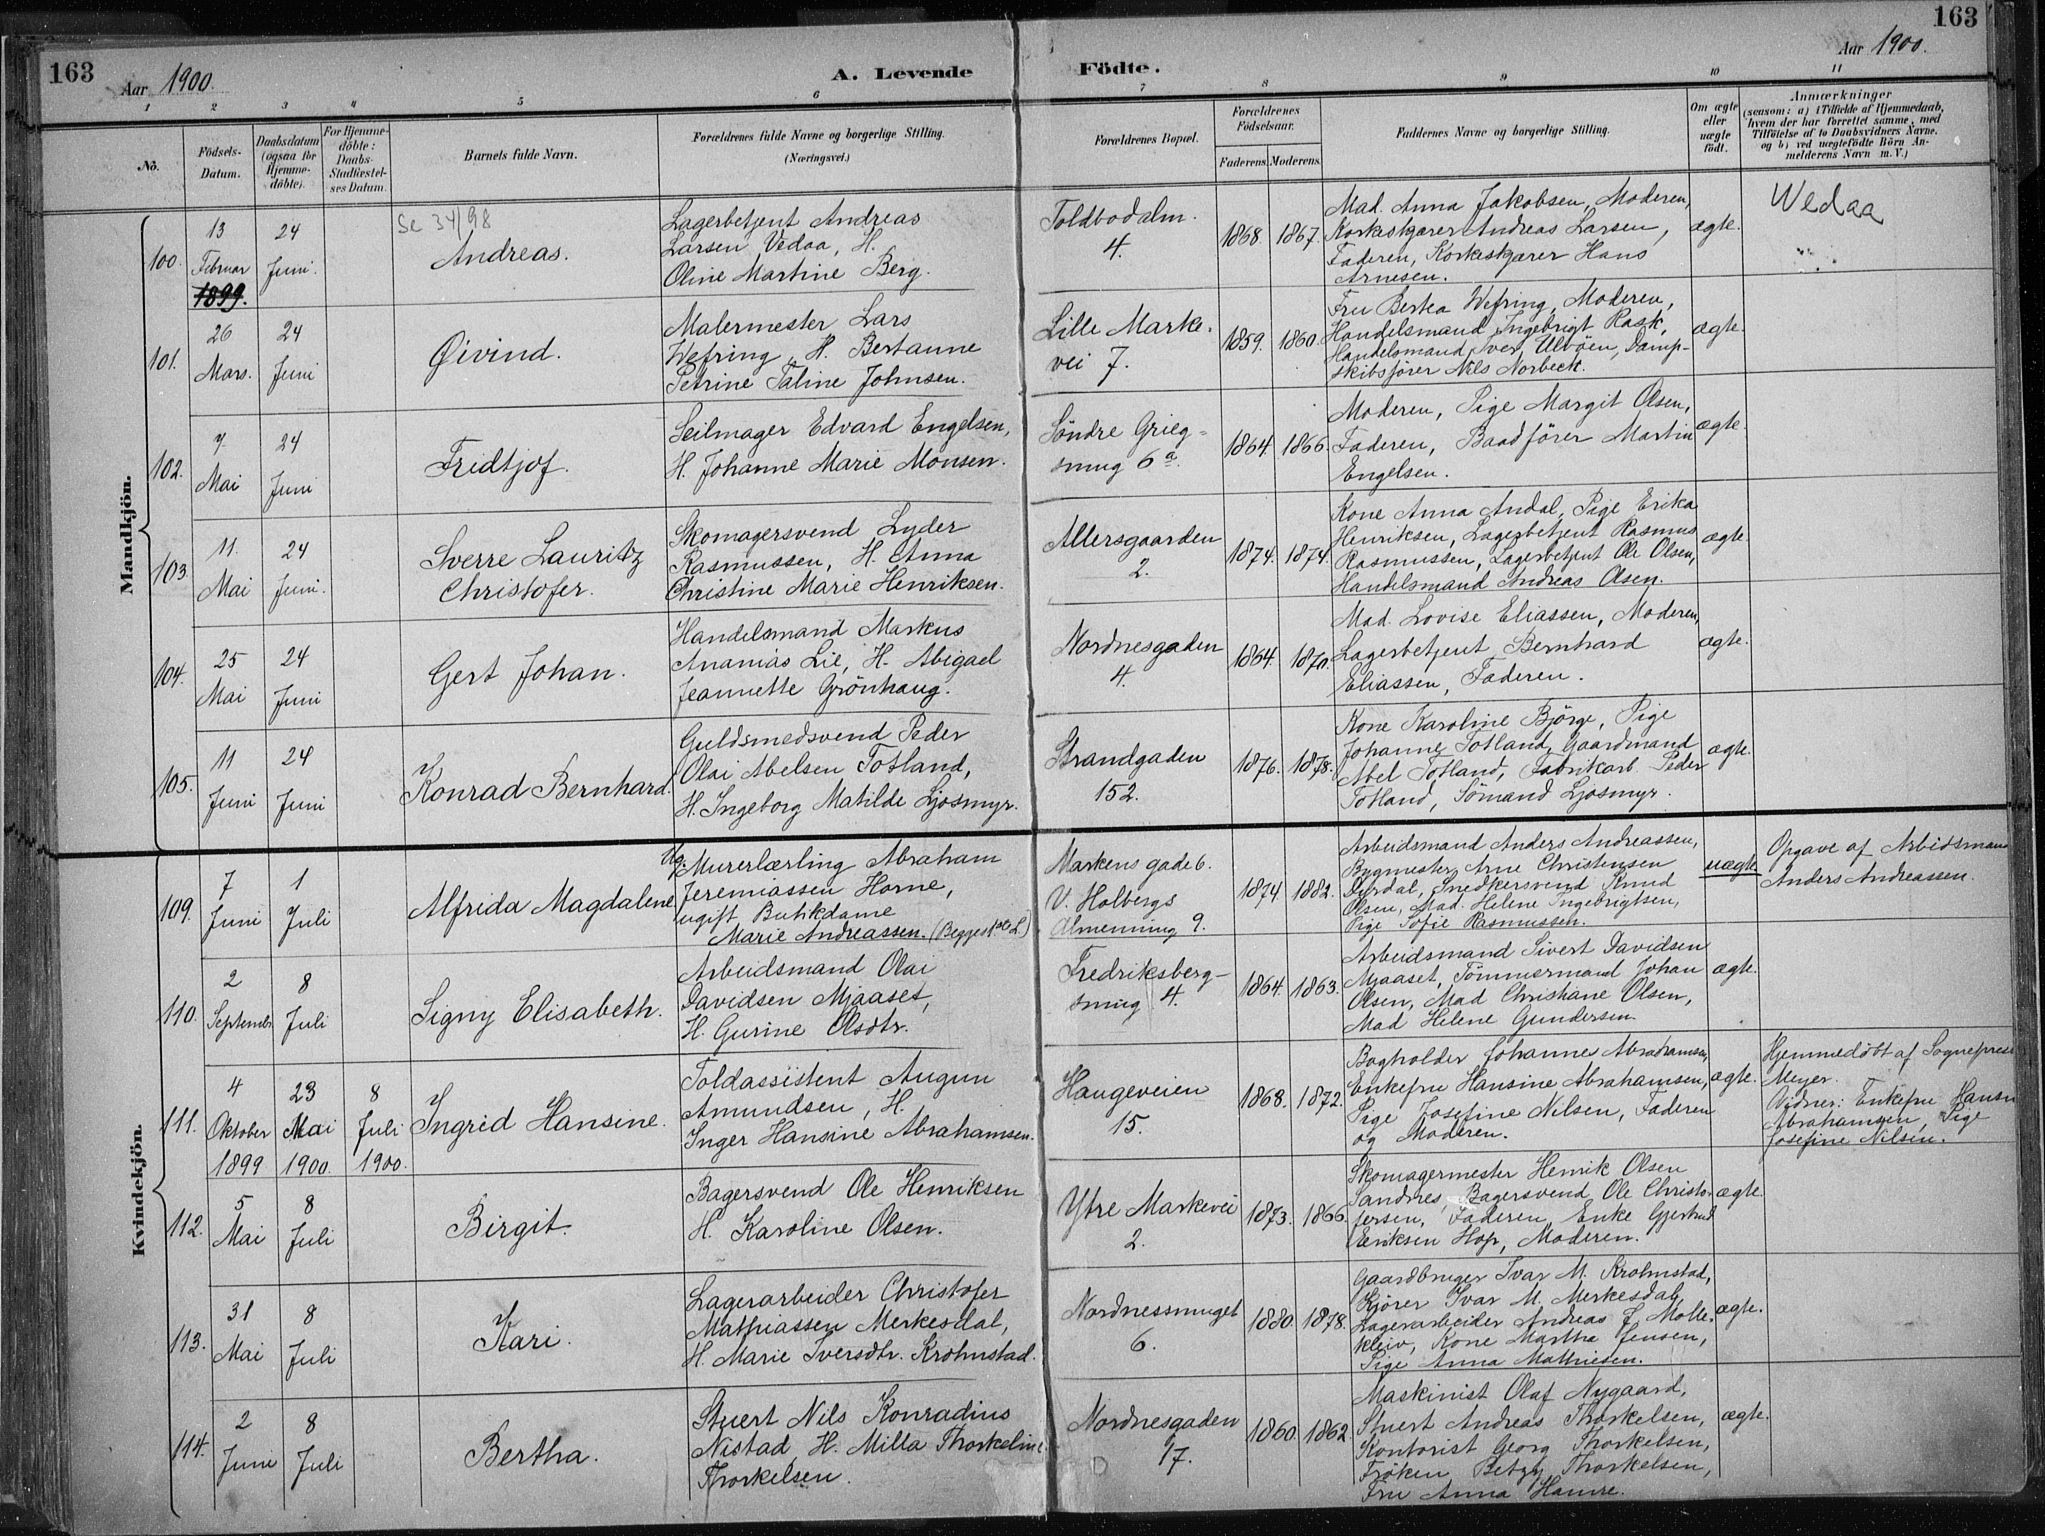 163
Aar 1900.
A. Levende
Födte.
Aar 1900.
163
1
2
3
4
5
6
7
8
9
10
11
No.
Födsels-
Datum.
Daabsdatum
(ogsaa for
Hjemme-
döbte).
For Hjemme-
döbte:
Daabs-
Stadfæstel-
ses Datum.
Barnets fulde Navn.
Forældrenes fulde Navne og borgerlige Stilling.
(Næringsvei.)
Forældrenes Bopæl.
Forældrenes
Födselsaar.
Faderens.
Moderens.
Faddernes Navne og borgerlige Stilling.
Om ægte
eller
uægte
födt.
Anmærkninger
(saasom: a) i Tilfælde af Hjemmedaab,
hvem der har forrettet samme, med
Tilföielse af to Daabsvidners Navne.
og b) ved uægtefödte Börn An-
melderens Navn m. V.)
Mandkjön.
100.
13
Februar
1899.
24
Juni.
Se 34/98
Andreas.
Lagerbetjent Andreas
Larsen Vedaa, H.
Oline Martine Berg.
Toldbodalm.
4.
1868.
1867.
Mad. Anna Jakobsen, Moderen,
Korkeskjærer Andreas Larsen,
Faderen, Korkeskjærer Hans
Arnesen.
ægte.
Wedaa
101.
26
Mars.
24
Juni
Øivind.
Malermester Lars
Wefring, H. Bertanne
Petrine Taline Johnsen.
Lille Marke-
vei 7.
1859.
1860.
Fru Berta Wefring, Moderen,
Handelsmand Ingebrigt Rask,
Handelsmand Iver Ulvöen, Damp-
skibsförer Nils Norbeck.
ægte.
102.
7
Mai
24
Juni
Fridtjof.
Seilmager Edvard Engelsen,
H. Johanne Marie Monsen.
Söndre Grieg-
smug 6a.
1864.
1866.
Moderen, Pige Margit Olsen,
Faderen, Baadförer Martin
Engelsen.
ægte.
103.
11.
Mai
24
Juni.
Sverre Lauritz
Christofer.
Skomagersvend Lyder
Rasmussen, H. Anna
Christine Marie Henriksen.
Allersgaarden
2.
1874.
1874.
Kone Anna Andal, Pige Erika
Henriksen, Lagerbetjent Rasmus
Rasmussen, Lagerbetjent Ole Olsen,
Handelsmand Andreas Olsen.
ægte.
104.
25
Mai
24
Juni
Gert Johan.
Handelsmand Markus
Ananias Lie, H. Abigael
Jeannette Grönhaug.
Nordnesgaden
4.
1864.
1870.
Mad. Lovise Eliassen, Moderen,
Lagerbetjent Bernhard
Eliassen, Faderen.
ægte.
105.
11
Juni
24
Juni
Konrad Bernhard.
Guldsmedsvend Peder
Olai Abelsen Totland,
H. Ingeborg Matilde Ljosmyr.
Strandgaden
152.
1876.
1878.
Kone Karoline Bjørge, Pige
Johanne Totland, Gaardmand
Abel Totland, Fabrikarb. Peder
Totland, Sömand Ljosmyr.
ægte.
Kvindekjön.
109.
7
Juni
1
Juli
Alfrida Magdalene
Ug. Murerlærling Abraham
Jeremiassen Horne,
ugift Butikdame
Marie Andreassen. (Begges 1ste L)
Markens gade 6.
V. Holbergs
Almenning 9.
1874
1882.
Arbeidsmand Anders Andreassen,
Bygmester Arne Christensen
Dyrdal, Snedkersvend Knud
Olsen, Mad. Helene Ingebrigtsen,
Pige Sofie Rasmussen.
uægte
Opgave af Arbidsmand
Anders Andreassen.
110.
2
September
8
Juli
Signy Elisabeth.
Arbeidsmand Olai
Davidsen Mjaaset,
H. Gurine Olsdtr.
Fredriksberg-
smug 4.
1864.
1863.
Arbeidsmand Sivert Davidsen
Mjaaset, Tömmermand Johan
Olsen, Mad Christiane Olsen,
Mad Helene Gundersen.
ægte.
111.
4
Oktober
1899
23
Mai
1900.
8
Juli
1900.
Ingrid Hansine.
Toldassistent Augun
Amundsen, H.
Inger Hansine Abrahamsen.
Haugeveien
15.
1868.
1872.
Bogholder Johannes Abrahamsen,
Enkefru Hansine Abrahamsen,
Pige Josefine Nilsen, Faderen
og Moderen.
ægte.
Hjemmedöbt af Sognepræst
Meyer.
Vidner: Enkefru Hansin
Abrahamsen, Pige
Josefine Nilsen.
112.
5
Mai
8
Juli
Birgit.
Bagersvend Ole Henriksen
H. Karoline Olsen.
Ytre Markevei
2.
1873.
1866.
Skomagermester Henrik Olsen
Sandnes, Bagersvend Ole Christo-
fersen, Faderen, Enke Gjertrud
Eriksen Hop, Moderen.
ægte.
113.
31
Mai
8
Juli
Kari.
Lagerarbeider Christofer
Mathiassen Merkesdal,
H. Marie Iversdtr. Krohnstad.
Nordnessmuget
6.
1880.
1878.
Gaardbruger Ivar M. Krohnstad,
Kjörer Ivar M. Merkesdal,
Lagerarbeider Andreas J. Molle-
kleiv, Kone Martha Jensen,
Pige Anna Mathiesen.
ægte.
114.
2
Juni
8
Juli
Bertha.
Stuert Nils Konradius
Nistad H. Milla Thorkeline
Thorkelsen.
Nordnesgaden
17.
1860.
1862
Maskinist Olaf Nygaard,
Stuert Andreas Thorkelsen,
Kontorist Georg Thorkelsen,
Fröken Betzy Thorkelsen,
Fru Anna Hamre.
ægte.